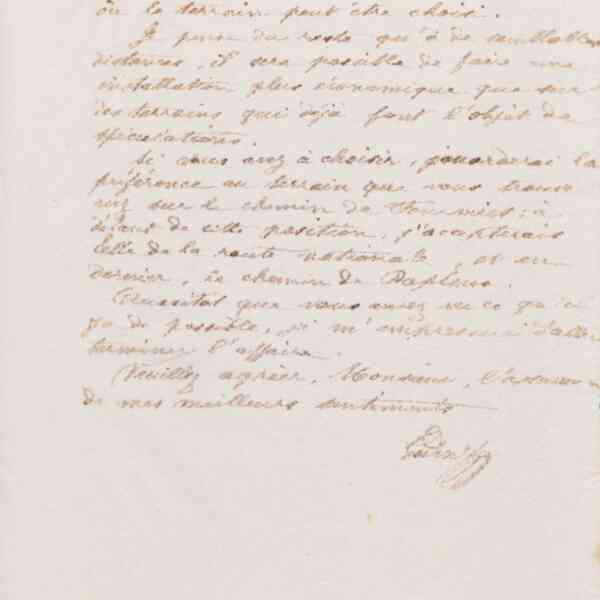 où le terrain peut être choisi.
Je pense du reste qu'à de semblables
distances, il sera possible de faire une
installation plus économique que sur
des terrains qui déjà font l'objet de
spéculations.
Si vous avez à choisir, j'accorderai la
préférence au terrain que vous trouve
rez sur le chemin de à
défaut de cette position, j'accepterais
celle de la route nationale, et en
dernier, le chemin de
Aussitôt que vous aurez vu ce qu'il
y a de possible, je m'empresserai d'aller
terminer l'affaire.
Veuillez agréer, Monsieur, l'assurance
de mes meilleurs sentiments
Godin